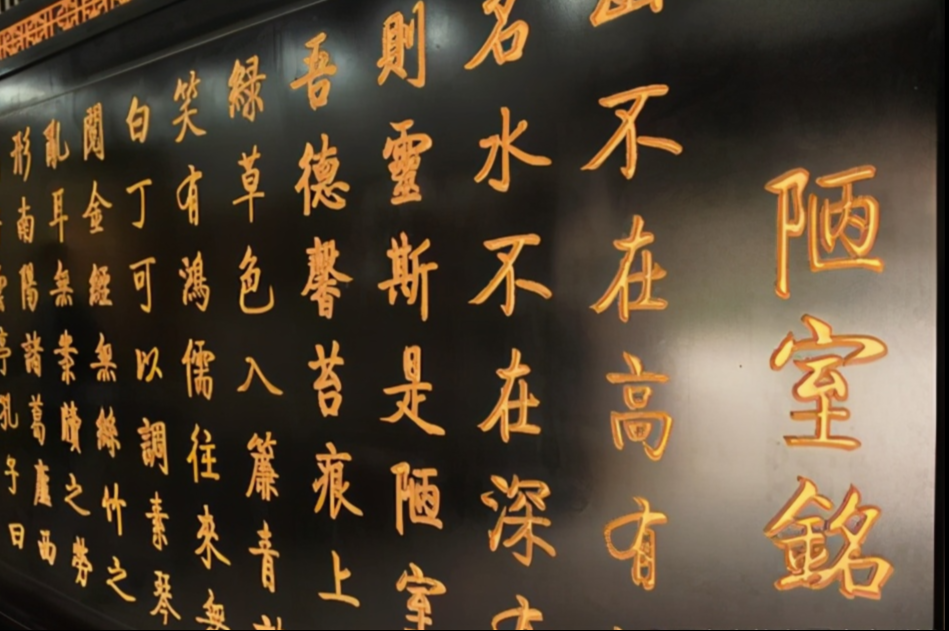 陋室銘
山不在高有
名水不在深有
則靈斯是陋室
吾德馨苔痕上
綠草色入簾青
笑有鴻儒往來無
白丁可以調素琴
閱金經無絲竹之
亂耳無案牘之勞
形南陽諸葛廬西
雲亭孔子曰